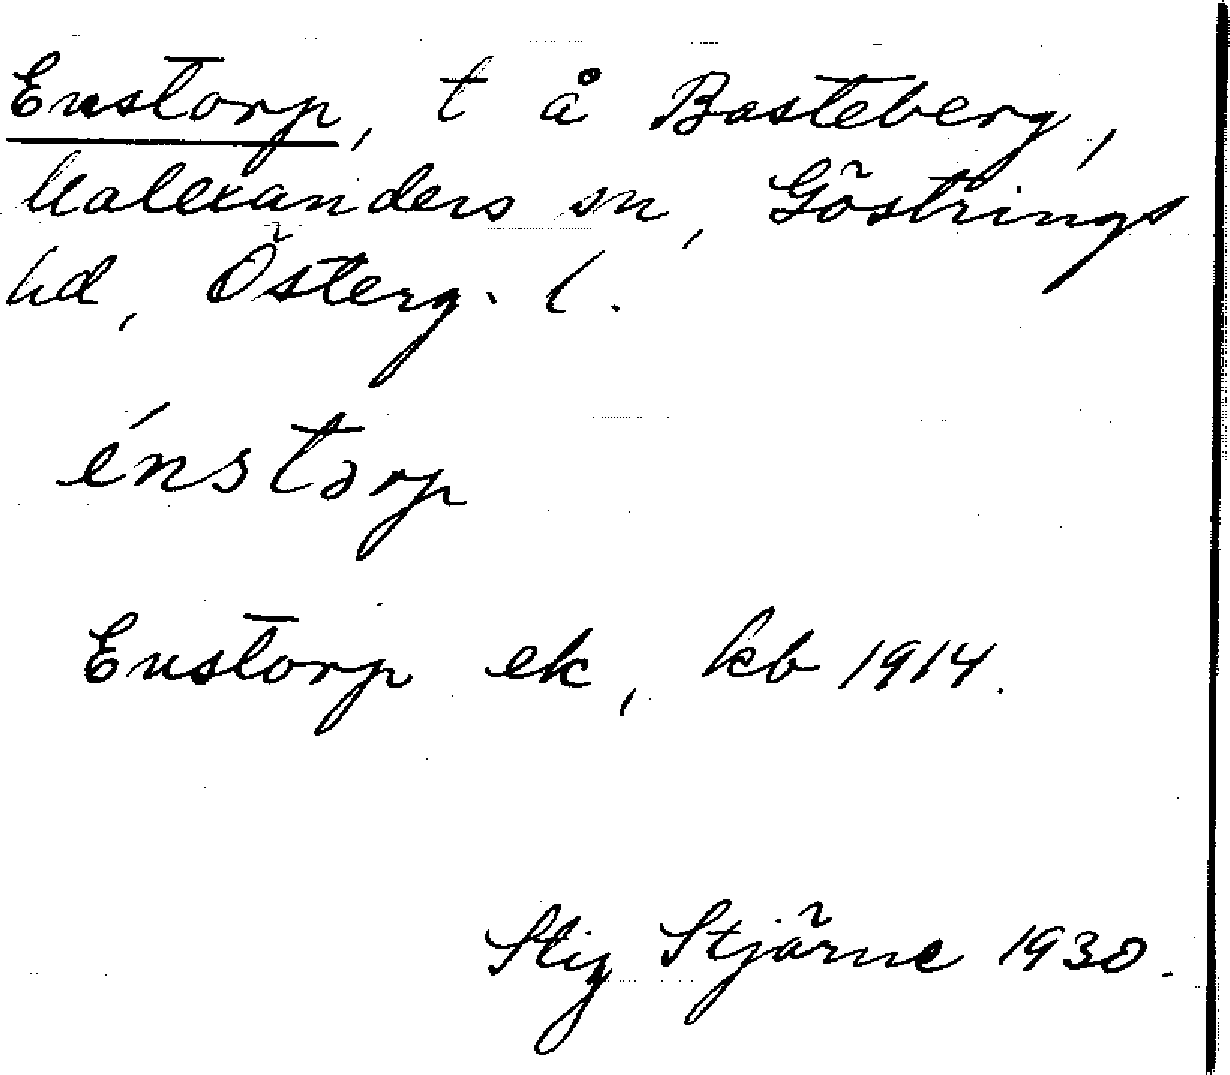 Enstorp, t å Basteberg,
Malexanders sn, Göstrings
hd, Österg. l.
énstorp
Enstorp ek, kb 1914.
Stig Stjärne 1930.